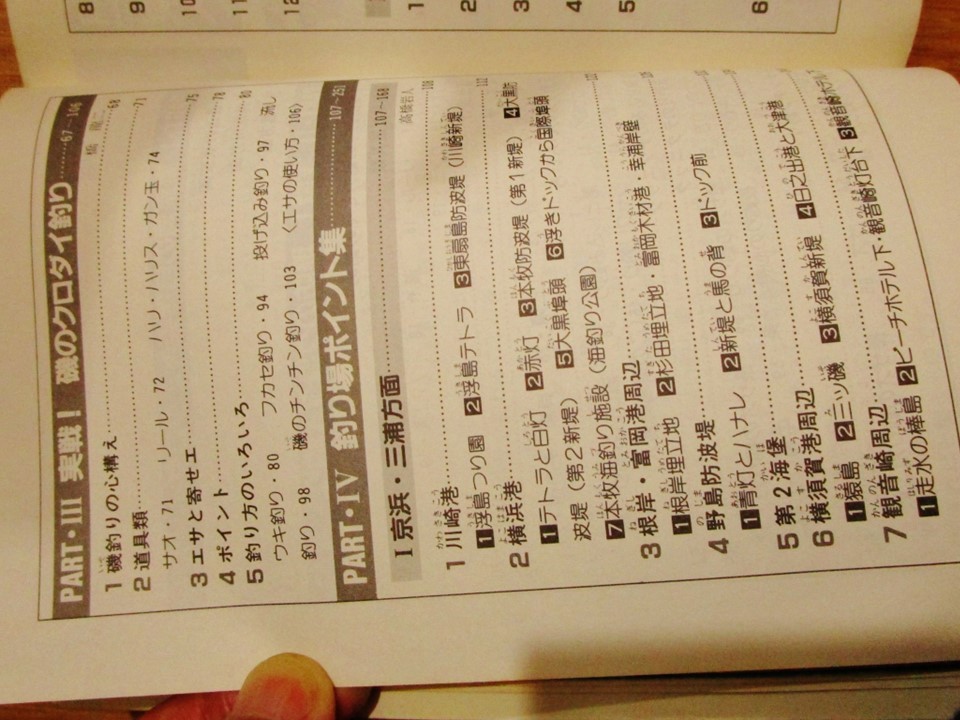 PART・III 実戦！ 磯のクロダイ釣り……67～106
1 磯釣りの心構え……68
2 道具類……71
サオ・71 リール・72 ハリ・ハリス・ガン玉・74
3 エサと寄せエ……75
4 ポイント……78
5 釣り方のいろいろ……80
ウキ釣り・80 フカセ釣り・94 投げ込み釣り・97 流し
釣り・98 磯のチンチン釣り・103 〈エサの使い方・106〉
PART・IV 釣り場ポイント集……107～251
I 京浜・三浦方面……107～168
高橋岩人
1 川崎港……108
1浮島つり園 2浮島テトラ 3東扇島防波堤（川崎新堤）
2 横浜港……112
1テトラと白灯 2赤灯 3本牧防波堤（第1新堤） 4大黒防
波堤（第2新堤） 5大黒埠頭 6浮きドックから国際埠頭
7本牧海釣り施設（海釣り公園）
3 根岸・富岡港周辺
1根岸埋立地 2杉田埋立地・富岡木材港・幸浦岸壁
4 野島防波堤
1青灯とハナレ 2新堤と馬の背 3ドック前
5 第2海堡
6 横須賀港周辺
1猿島 2三ツ磯 3横須賀新堤 4日之出港と大津港
7 観音崎周辺
1走水の棒島 2ビーチホテル下・観音崎灯台下 3観音崎ホテル下
8
9
10
11
12
1
2
3
4
5
6